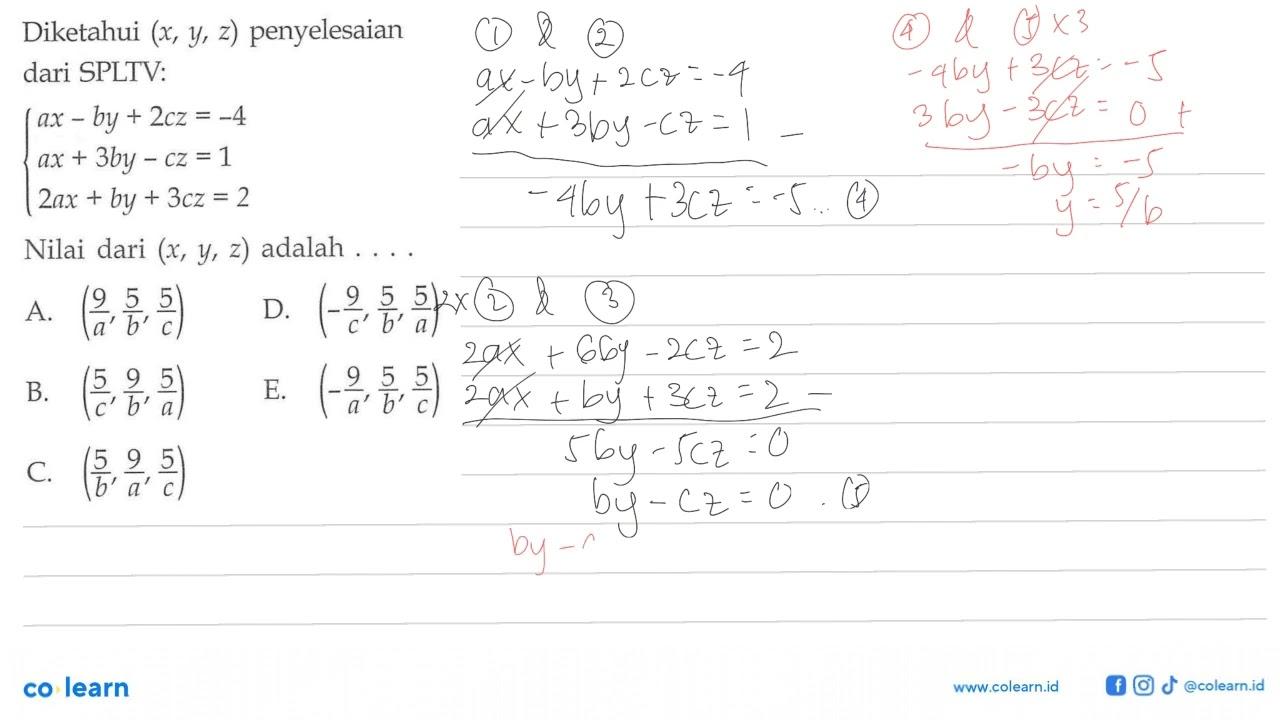 Diketahui (x, y, z) penyelesaian
dari SPLTV:
ax – by + 2cz = –4
ax + 3by – cz = 1
2ax + by + 3cz = 2
Nilai dari (x, y, z) adalah . . . .
A. (9/a, 5/b, 5/c)
B. (5/c, 9/b, 5/a)
C. (5/b, 9/a, 5/c)
D. (–9/c, 5/b, 5/a)
E. (–9/a, 5/b, 5/c)
① & ②
ax – by + 2cz = –4
ax + 3by – cz = 1 –
–4by + 3cz = –5 ... ④
2x ② & ③
2ax + 6by – 2cz = 2
2ax + by + 3cz = 2 –
5by – 5cz = 0
by – cz = 0 . ⑤
by –
④ & ⑤ x 3
–4by + 3cz = –5
3by – 3cz = 0 +
–by = –5
y = 5/b
co learn
www.colearn.id
@colearn.id